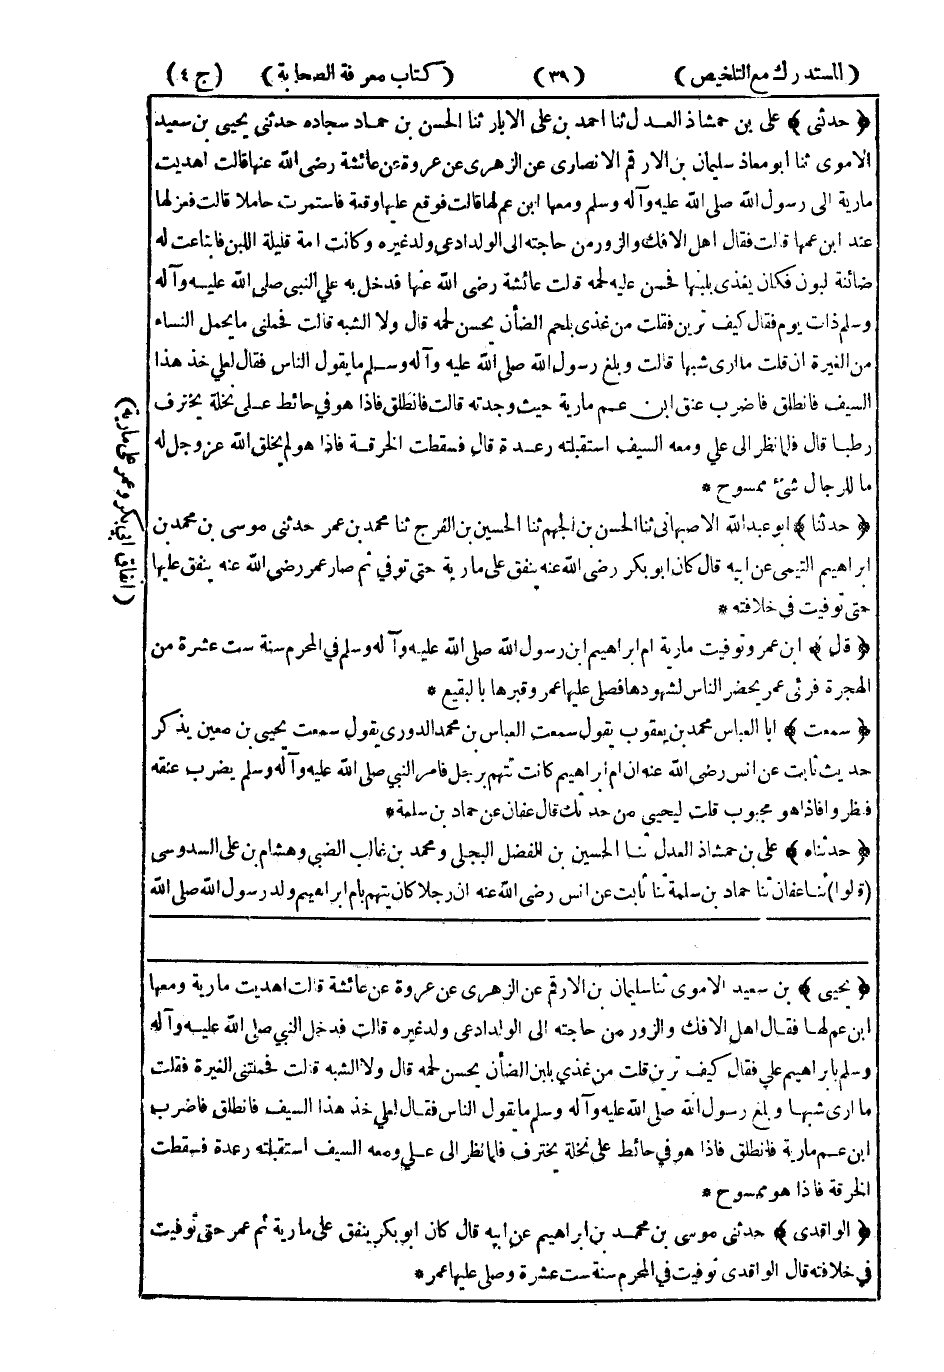 (المستدرك مع التلخيص) (٣٩) (كتاب معرفة الصحابة) (ج ٤)
﴿ حدثنى ﴾ على بن حمشاذ العدل ثنا احمد بن على الابار ثنا الحسن بن حماد سجاده حدثنى يحيى بن سعيد
الاموى ثنا ابو معاذ سليمان بن الارقم الانصارى عن الزهرى عن عروة عن عائشة رضى الله عنها قالت اهديت
مارية الى رسول الله صلى الله عليه وآله وسلم ومعها ابن عم لها قالت فوقع عليها وقعة فاستمرت حاملا قالت فعزلها
عند ابن عمها قالت فقال اهل الافك والزور من حاجته الى الولد ادعى ولد غيره وكانت امة قليلة اللبن فابتاعت له
ضائنة لبون فكان يغذى بلبنها فحسن عليه لحمه قالت عائشة رضى الله عنها فدخل به علي النبي صلى الله عليه وآله
وسلم ذات يوم فقال كيف ترين فقلت من غذى بلحم الضأن يحسن لحمه قال ولا الشبه قالت فحملنى ما يحمل النساء
من الغيرة ان قلت ما ارى شبها قالت وبلغ رسول الله صلى الله عليه وآله وسلم ما يقول الناس فقال لعلي خذ هذا
السيف فانطلق فاضرب عنق ابن عم مارية حيث وجدته قالت فانطلق فاذا هو في حائط على نخلة يخترف
رطبا قال فلما نظر الى علي ومعه السيف استقبلته رعدة قال فسقطت الخرقة فاذا هو لم يخلق الله عز وجل له
ما للرجال شئ ممسوح *
﴿ حدثنا ﴾ ابو عبد الله الاصبهانى ثنا الحسن بن الجهم ثنا الحسين بن الفرج ثنا محمد بن عمر حدثنى موسى بن محمد بن
ابراهيم التيمى عن ابيه قال كان ابو بكر رضى الله عنه ينفق على مارية حتى توفي ثم صار عمر رضى الله عنه ينفق عليها
حتى توفيت في خلافته *
﴿ قال ﴾ ابن عمر وتوفيت مارية ام ابراهيم ابن رسول الله صلى الله عليه وآله وسلم في المحرم سنة ست عشرة من
الهجرة فرئى عمر يحضر الناس لشهودها فصلى عليها عمر وقبرها بالبقيع *
﴿ سمعت ﴾ ابا العباس محمد بن يعقوب يقول سمعت العباس بن محمد الدورى يقول سمعت يحيى بن معين يذكر
حديث ثابت عن انس رضى الله عنه ان ام ابراهيم كانت تتهم برجل فامر النبي صلى الله عليه وآله وسلم يضرب عنقه
فنظروا فاذا هو مجبوب قلت ليحيى من حدثك قال عفان عن حماد بن سلمة *
﴿ حدثناه ﴾ على بن حمشاذ العدل ثنا الحسين بن الفضل البجلى ومحمد بن غالب الضبى وهشام بن على السدوسى
(قالوا) ثنا عفان ثنا حماد بن سلمة ثنا ثابت عن انس رضى الله عنه ان رجلا كان يتهم بام ابراهيم ولد رسول الله صلى الله
﴿ يحيى ﴾ بن سعيد الاموى ثنا سليمان بن الارقم عن الزهرى عن عروة عن عائشة قالت اهديت مارية ومعها
ابن عم لها فقال اهل الافك والزور من حاجته الى الولد ادعى ولد غيره قالت فدخل النبي صلى الله عليه وآله
وسلم بابراهيم علي فقال كيف ترين قلت من غذي بلبن الضأن يحسن لحمه قال ولا الشبه قالت فحملتنى الغيرة فقلت
ما ارى شبها وبلغ رسول الله صلى الله عليه وآله وسلم ما يقول الناس فقال لعلي خذ هذا السيف فانطلق فاضرب
ابن عم مارية فانطلق فاذا هو في حائط على نخلة يخترف فلما نظر الى علي ومعه السيف استقبلته رعدة فسقطت
الخرقة فاذا هو ممسوح *
﴿ الواقدى ﴾ حدثنى موسى بن محمد بن ابراهيم عن ابيه قال كان ابو بكر ينفق على مارية ثم عمر حتى توفيت
في خلافته قال الواقدى توفيت في المحرم سنة ست عشرة وصلى عليها عمر *
(انفاق ابي بكر وعمر على مارية)